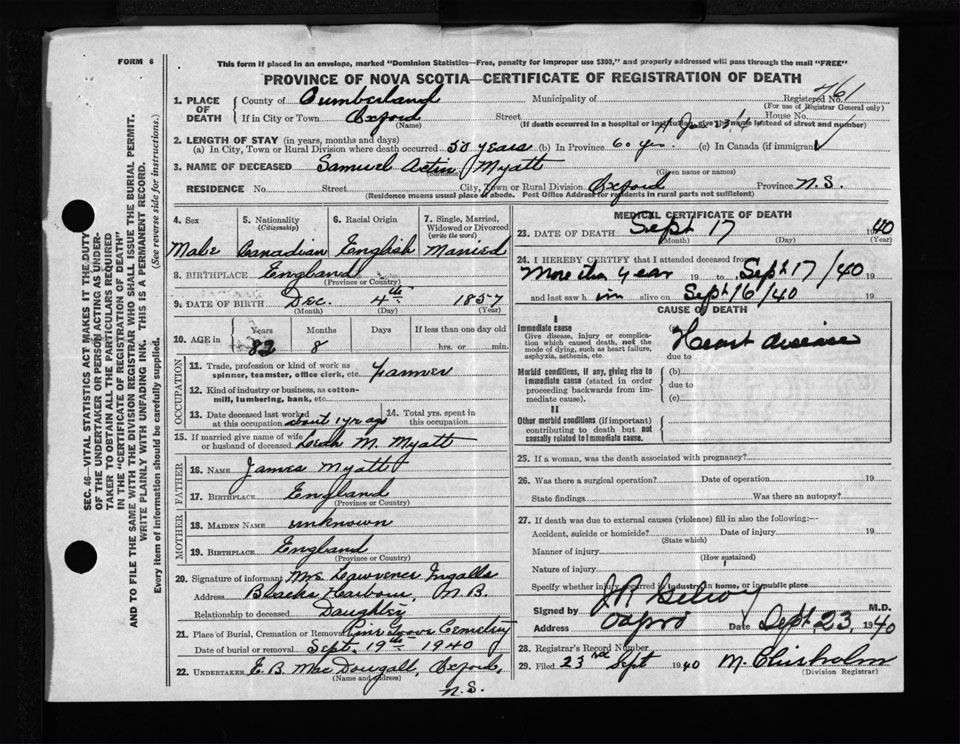 FORM 6
This form if placed in an envelope, marked "Dominion Statistics—Free, penalty for improper use $300," and properly addressed will pass through the mail "FREE"
PROVINCE OF NOVA SCOTIA—CERTIFICATE OF REGISTRATION OF DEATH
SEC. 46—VITAL STATISTICS ACT MAKES IT THE DUTY
OF THE UNDERTAKER OR PERSON ACTING AS UNDER-
TAKER TO OBTAIN ALL THE PARTICULARS REQUIRED
IN THE "CERTIFICATE OF REGISTRATION OF DEATH"
AND TO FILE THE SAME WITH THE DIVISION REGISTRAR WHO SHALL ISSUE THE BURIAL PERMIT.
WRITE PLAINLY WITH UNFADING INK. THIS IS A PERMANENT RECORD.
Every item of information should be carefully supplied. (See reverse side for instructions.)
1. PLACE OF DEATH
County of Cumberland Municipality of Registered No. 761
(For use of Registrar General only)
If in City or Town Oxford Street House No.
(Name) (If death occurred in a hospital or institution, give the name instead of street and number)
2. LENGTH OF STAY (in years, months and days)
(a) In City, Town or Rural Division where death occurred 50 years (b) In Province 60 yrs. (c) In Canada (if immigrant)
3. NAME OF DECEASED Samuel Myatt
(Surname) (Given name or names)
RESIDENCE No. Street City, Town or Rural Division Oxford Province N.S.
(Residence means usual place of abode. Post Office Address for residents in rural parts not sufficient)
4. Sex Male
5. Nationality (Citizenship) Canadian
6. Racial Origin English
7. Single, Married, Widowed or Divorced (write the word) Married
8. BIRTHPLACE England
(Province or Country)
9. DATE OF BIRTH Dec. 4th 1857
(Month) (Day) (Year)
10. AGE in Years 82 Months 8 Days If less than one day old hrs. or min.
OCCUPATION
11. Trade, profession or kind of work as spinner, teamster, office clerk, etc. Farmer
12. Kind of industry or business, as cotton-mill, lumbering, bank, etc.
13. Date deceased last worked at this occupation about 1 yr ago
14. Total yrs. spent in this occupation
15. If married give name of wife or husband of deceased Leah M. Myatt
FATHER
16. NAME James Myatt
17. BIRTHPLACE England
(Province or Country)
MOTHER
18. MAIDEN NAME unknown
19. BIRTHPLACE England
(Province or Country)
20. Signature of informant Mrs Lawrence Ingalls
Address Blacks Harbour, N.B.
Relationship to deceased Daughter
21. Place of Burial, Cremation or Removal Pine Grove Cemetery
Date of burial or removal Sept. 19th 1940
22. UNDERTAKER E. B. MacDougall, Oxford, N.S.
(Name and address)
MEDICAL CERTIFICATE OF DEATH
23. DATE OF DEATH Sept 17 1940
(Month) (Day) (Year)
24. I HEREBY CERTIFY that I attended deceased from
More than year 19 to Sept 17/40 19
and last saw him alive on Sept 16/40 19
CAUSE OF DEATH
I
Immediate cause
Give disease, injury or complication which caused death, not the mode of dying, such as heart failure, asphyxia, asthenia, etc.
(a) Heart disease
due to
Morbid conditions, if any, giving rise to immediate cause (stated in order proceeding backwards from immediate cause).
(b)
due to
(c)
II
Other morbid conditions (if important) contributing to death but not causally related to immediate cause.
25. If a woman, was the death associated with pregnancy?
26. Was there a surgical operation? Date of operation 19
State findings Was there an autopsy?
27. If death was due to external causes (violence) fill in also the following:—
Accident, suicide or homicide? Date of injury 19
(State which)
Manner of injury
(How sustained)
Nature of injury
Specify whether injury occurred in industry, in home, or in public place
Signed by M.D.
Address Oxford Date Sept 23, 1940
28. Registrar's Record Number
29. Filed 23rd Sept 1940 M. Chisholm
(Division Registrar)